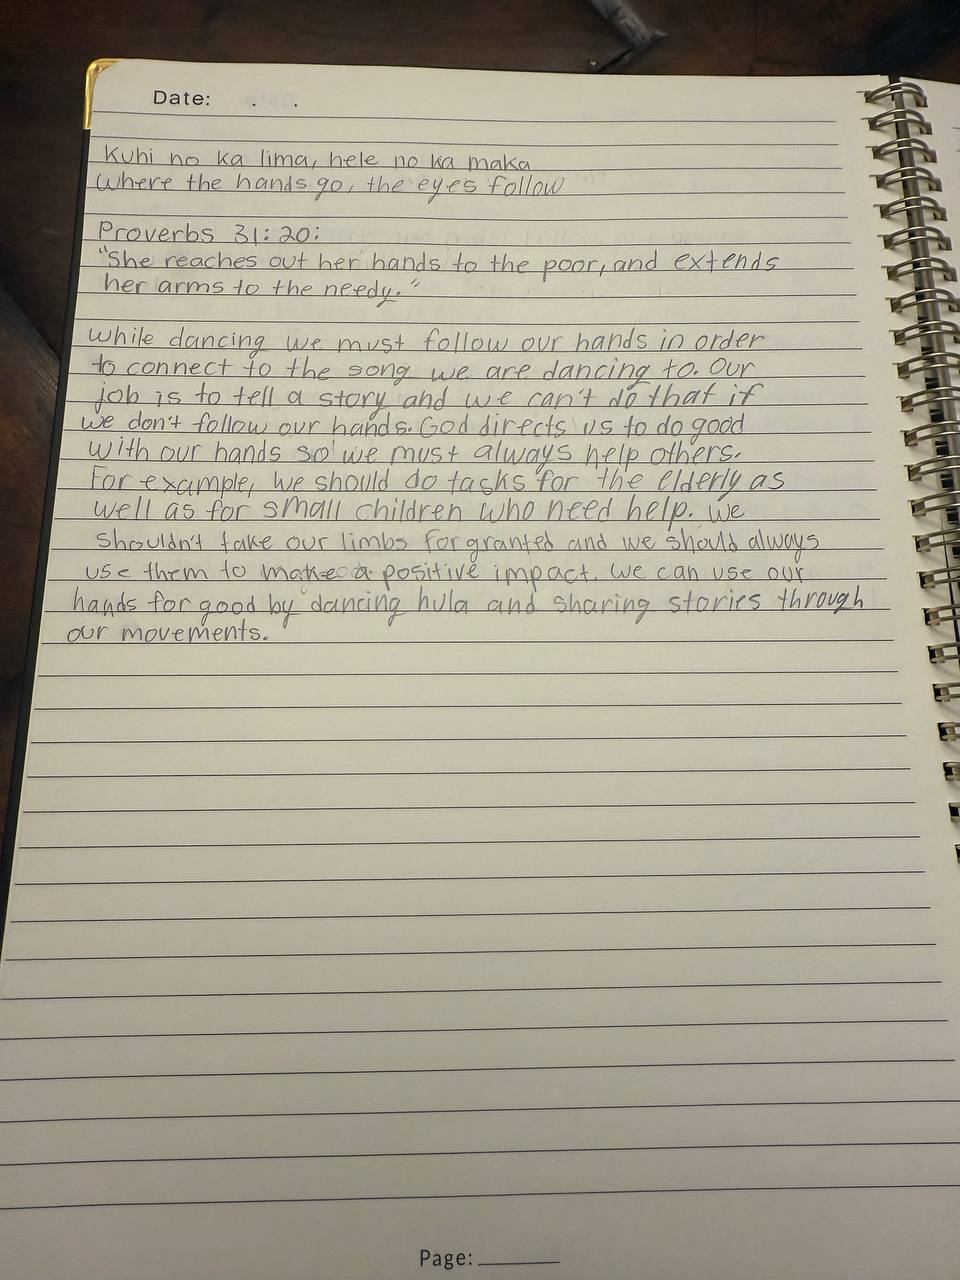 Date: . .
Kuhi no ka lima, hele no ka maka
Where the hands go, the eyes follow
Proverbs 31:20:
"She reaches out her hands to the poor, and extends
her arms to the needy."
While dancing we must follow our hands in order
to connect to the song we are dancing to. Our
job is to tell a story and we can't do that if
we don't follow our hands. God directs us to do good
with our hands so we must always help others.
For example, we should do tasks for the elderly as
well as for small children who need help. We
shouldn't take our limbs for granted and we should always
use them to make a positive impact. We can use our
hands for good by dancing hula and sharing stories through
our movements.
Page: